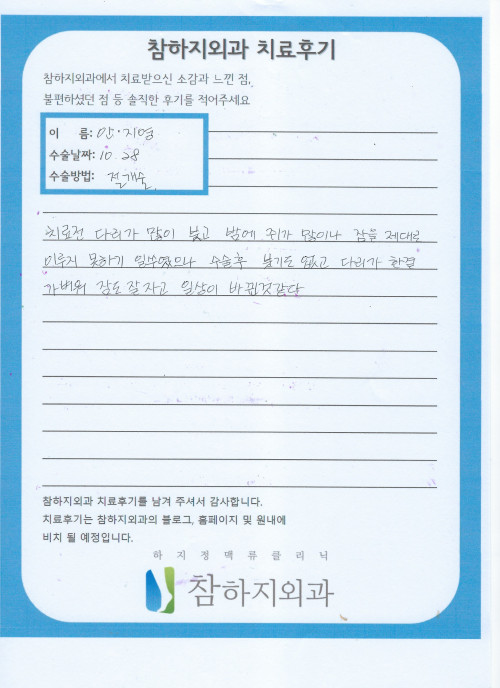 참하지외과 치료후기
참하지외과에서 치료받으신 소감과 느낀 점,
불편하셨던 점 등 솔직한 후기를 적어주세요
이 름: 안·지영
수술날짜: 10. 28
수술방법: 절개술
치료전 다리가 많이 붓고 밤에 쥐가 많이나 잠을 제대로
이루지 못하기 일쑤였으나 수술후 붓기도 없고 다리가 한결
가벼워 잠도 잘자고 일상이 바뀐것같다
참하지외과 치료후기를 남겨 주셔서 감사합니다.
치료후기는 참하지외과의 블로그, 홈페이지 및 원내에
비치 될 예정입니다.
하지정맥류클리닉
참하지외과